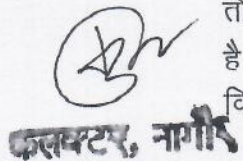 तो
है
वि
कलक्टर, नागौर